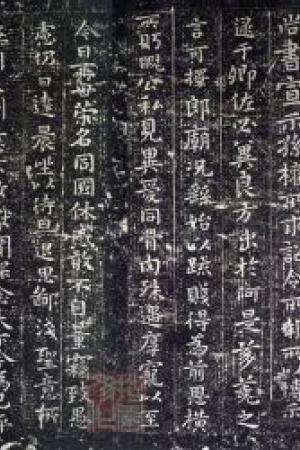 尚書宣示孫權所求詔令所報所以博示
逮于卿佐必異良方出於阿是芻蕘之
言可擇郎廟況繇始以疏賤得為前恩橫
所盻睨公私見異愛同骨肉殊遇厚寵以至
今日再世榮名同國休慼敢不自量竊致愚
慮仍日達晨坐以待旦退思鄙淺聖意所